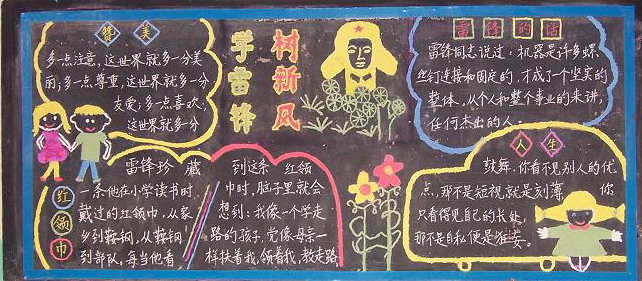 赞美
多点注意，这世界就多一分美
丽；多一点尊重，这世界就多一分
友爱；多一点喜欢，
这世界就多一分
学雷锋
树新风
雷锋的话
雷锋同志说过：机器是许多螺
丝钉连接和固定的，才成了个坚实的
整体，从个人和整个事业的来讲，
任何杰出的人。
红领巾
雷锋珍藏
一条他在小学读书时
戴过的红领巾，从家
乡到鞍钢，从鞍钢
到部队，每当他看
到这条红领
巾时，脑子里就会
想到：我像一个学走
路的孩子，党像母亲一
样扶着我，领着我，教走路
人生
鼓舞，你看不见别人的优
点，那不是短视就是刻薄，你
只看得见自己的长处，
那不是自私便是狂妄。